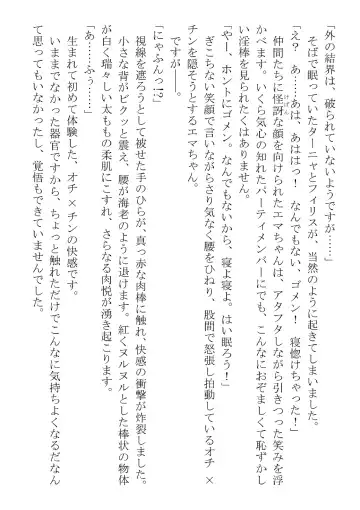 「外の結界は、破られていないようですが……」
そばで眠っていたターニャとフィリスが、当然のように起きてしまいました。
「え？　あ……あは、あははっ！　なんでもない、ゴメン！　寝惚けちゃった！」
仲間たちに怪訝な顔を向けられたエマちゃんは、アタフタしながら引きつった笑みを浮
かべます。いくら気心の知れたパーティメンバーにでも、こんなにおぞましくて恥ずかし
い淫棒を見られたくはありません。
「やー、ホントにゴメン。なんでもないから、寝よ寝よ。はい眠ろう！」
ぎこちない笑顔で言いながらさり気なく腰をひねり、股間で怒張し拍動しているオチ×
チンを隠そうとするエマちゃん。
ですが――。
「にゃふんっ!?」
視線を遮ろうとして被せた手のひらが、真っ赤な肉棒に触れ、快感の衝撃が炸裂しました。
小さな背がビクッと震え、腰が海老のように退けます。紅くヌルヌルとした棒状の物体
が白く瑞々しい太ももの柔肌にこすれ、さらなる肉悦が湧き起こります。
「あ……ふぅ……」
生まれて初めて体験した、オチ×チンの快感です。
いままでなかった器官ですから、ちょっと触れただけでこんなに気持ちよくなるだなん
て思ってもいなかったし、覚悟もできていませんでした。